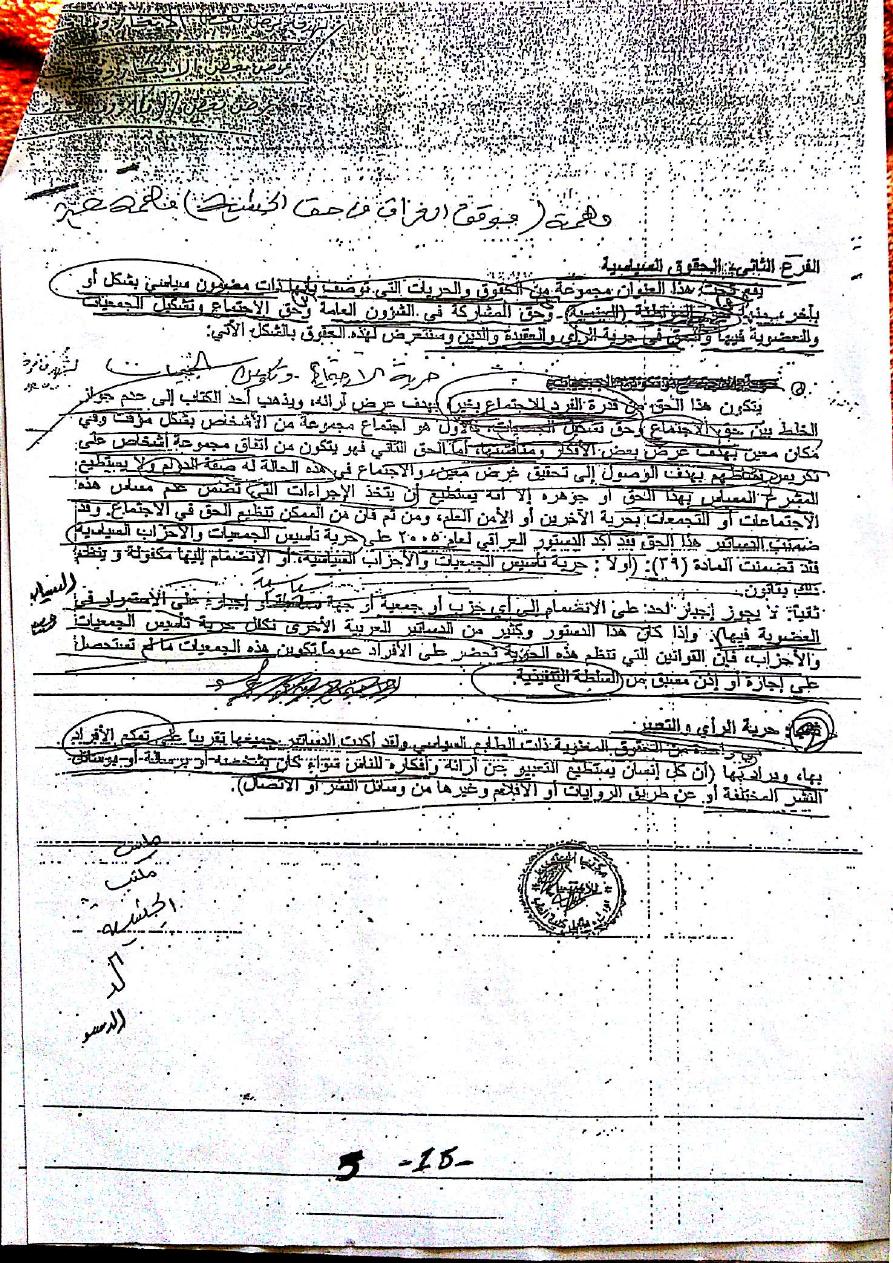 مهمة (موقف العراق من حق الجنسية) مهمة
الفرع الثاني: الحقوق السياسية
يقع تحت هذا العنوان مجموعة من الحقوق والحريات التي توصف بأنها ذات مضمون سياسي بشكل أو
بآخر، منها حق المواطنة (الجنسية)، وحق المشاركة في الشؤون العامة وحق الاجتماع وتشكيل الجمعيات
والعضوية فيها والحق في حرية الرأي والعقيدة والدين وسنتعرض لهذه الحقوق بالشكل الآتي:
حرية الاجتماع وتكوين الجمعيات
يتكون هذا الحق من قدرة الفرد للاجتماع بغيره بهدف عرض آرائه، ويذهب أحد الكتاب إلى عدم جواز
الخلط بين حق الاجتماع وحق تشكيل الجمعيات، فالأول هو اجتماع مجموعة من الأشخاص بشكل مؤقت وفي
مكان معين بهدف عرض بعض الأفكار ومناقشتها، أما الحق الثاني فهو يتكون من اتفاق مجموعة أشخاص على
تكريس نشاطهم بهدف الوصول إلى تحقيق غرض معين، والاجتماع في هذه الحالة له صفة الدوام ولا يستطيع
المشرع المساس بهذا الحق أو جوهره إلا انه يستطيع أن يتخذ الإجراءات التي تضمن عدم مساس هذه
الاجتماعات أو التجمعات بحرية الآخرين أو الأمن العام، ومن ثم فان من الممكن تنظيم الحق في الاجتماع. وقد
ضمنت الدساتير هذا الحق فقد أكد الدستور العراقي لعام ٢٠٠٥ على حرية تأسيس الجمعيات والأحزاب السياسية
فقد تضمنت المادة (٣٩): (أولاً: حرية تأسيس الجمعيات والأحزاب السياسية، أو الانضمام إليها مكفولة وينظم
ذلك بقانون.
سياسية
ثانياً: لا يجوز إجبار أحد على الانضمام إلى أي حزب أو جمعية أو جهة سياسية أو إجباره على الاستمرار في
العضوية فيها). وإذا كان هذا الدستور وكثير من الدساتير العربية الأخرى تكفل حرية تأسيس الجمعيات
والأحزاب، فإن القوانين التي تنظم هذه الحرية تحضر على الأفراد عموماً تكوين هذه الجمعيات ما لم تستحصل
على إجازة أو إذن مسبق من السلطة التنفيذية
حرية الرأي والتعبير
واحدة من الحقوق المعنوية ذات الطابع السياسي ولقد أكدت الدساتير جميعها تقريباً على تمتع الأفراد
بها، ويراد بها (أن كل إنسان يستطيع التعبير عن آرائه وأفكاره للناس سواء كان بشخصه أو برسالة أو بوسائل
النشر المختلفة أو عن طريق الروايات أو الأفلام وغيرها من وسائل النشر أو الاتصال).
مكتب
5 -15-